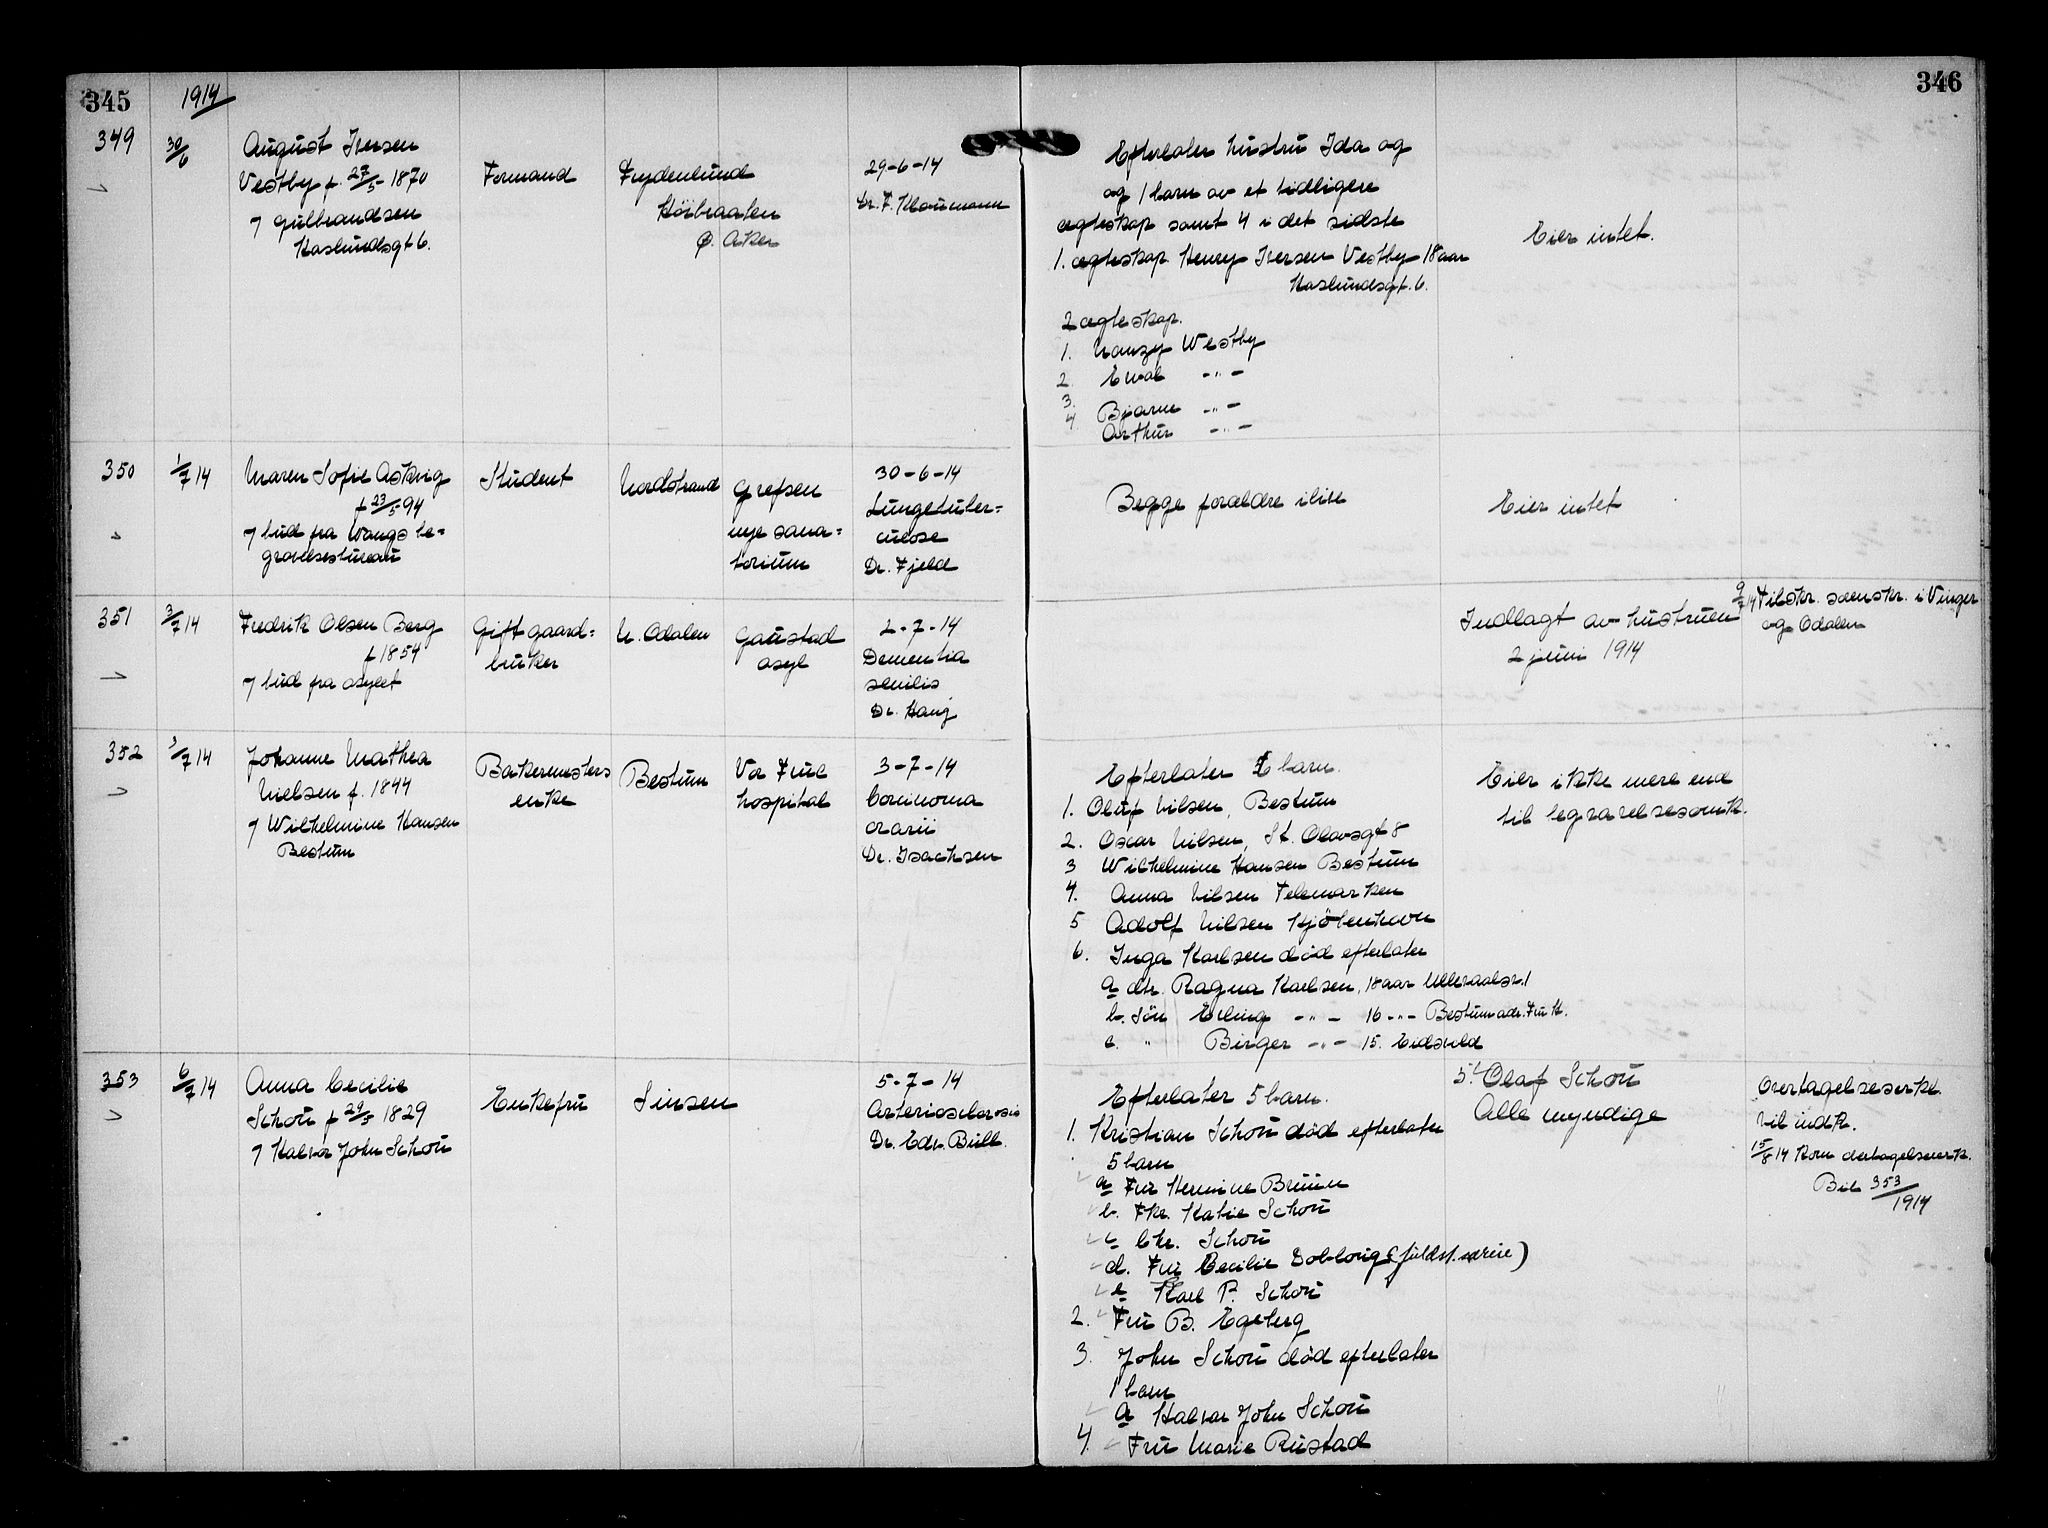 345
1914
346
349
30/6
August Iversen
Vestby f. 27/5 1870
7 Gulbrandsen
Haslundsgt 6.
Formand
Frydenlund
Höibraaten
Ö. Aker
29-6-14
Dr. F. Klaumann
Efterlater hustru Ida og
og 1 barn av et tidligere
egteskap samt 4 i det sidste
1. egteskap Henry Iversen Vestby 18 aar
Haslundsgt. 6.
2 egteskap.
1. Nanzy Westby
2. Eval -"-
3. Bjarne -"-
4 Arthur -"-
Eier intet.
350
1/7 14
Maren Sofie Askvig
f 23/5 94
7 bud fra Wangs be=
gravelsesbureau
Student
Nordstrand
Grefsen
nye sana=
torium
30-6-14
Lungetuber=
culose
Dr. Fjeld
Begge forældre ilive
Eier intet
351
3/7 14
Fredrik Olsen Berg
f 1854
7 bud fra asylet
Gift gaard=
bruker
N. Odalen
Gaustad
asyl
2-7-14
Dementia
senilis
Dr. Haug
Indlagt av hustruen
2 juni 1914
9/7 14 Tilskr. sorenskr. i Vinger
og Odalen
352
3/7 14
Johanne Mathea
Nielsen f. 1844
7 Wilhelmine Hansen
Bestum
Bakermesters
enke
Bestum
Vor Frue
hospital
3-7-14
Carcinoma
ovarii
Dr. Isachsen
Efterlater 6 barn.
1. Oluf Nilsen, Bestum
2. Oscar Nilsen, St. Olavsgt 8
3 Wilhelmine Hansen Bestum
4. Anna Nilsen Telemarken
5 Adolf Nilsen Kjöbenhavn
6. Inga Karlsen död efterlater
a dtr. Ragna Karlsen, 18 aar Ullevaalsv. 1
b. Sön Erling -"- 16 -"- Bestum adr. Fru H.
c. " Birger -"- 15. Eidsvold
Eier ikke mere end
til begravelsesomk.
353
6/7 14
Anna Cecilie
Schou f 29/3 1829
7 Halvor John Schou
Enkefru
Sinsen
5-7-14
Arteriosclerosis
Dr. Edv. Bull.
Efterlater 5 barn.
1. Kristian Schou död efterlater
5 barn
a Fru Hermine Bruun
b. Frk. Katie Schou
c Chr. Schou
d. Fru Cecilie Dobloug (fuldst. særeie)
e Karl P. Schou
2. Fru B. Egeberg
3. John Schou död efterlater
1 barn
a Halvor John Schou
4. Fru Marie Rustad
5. Olaf Schou
Alle myndige
Overtagelseserkl.
vil indk.
15/8 14 Kom overtagelseserk.
Bil 353/1914